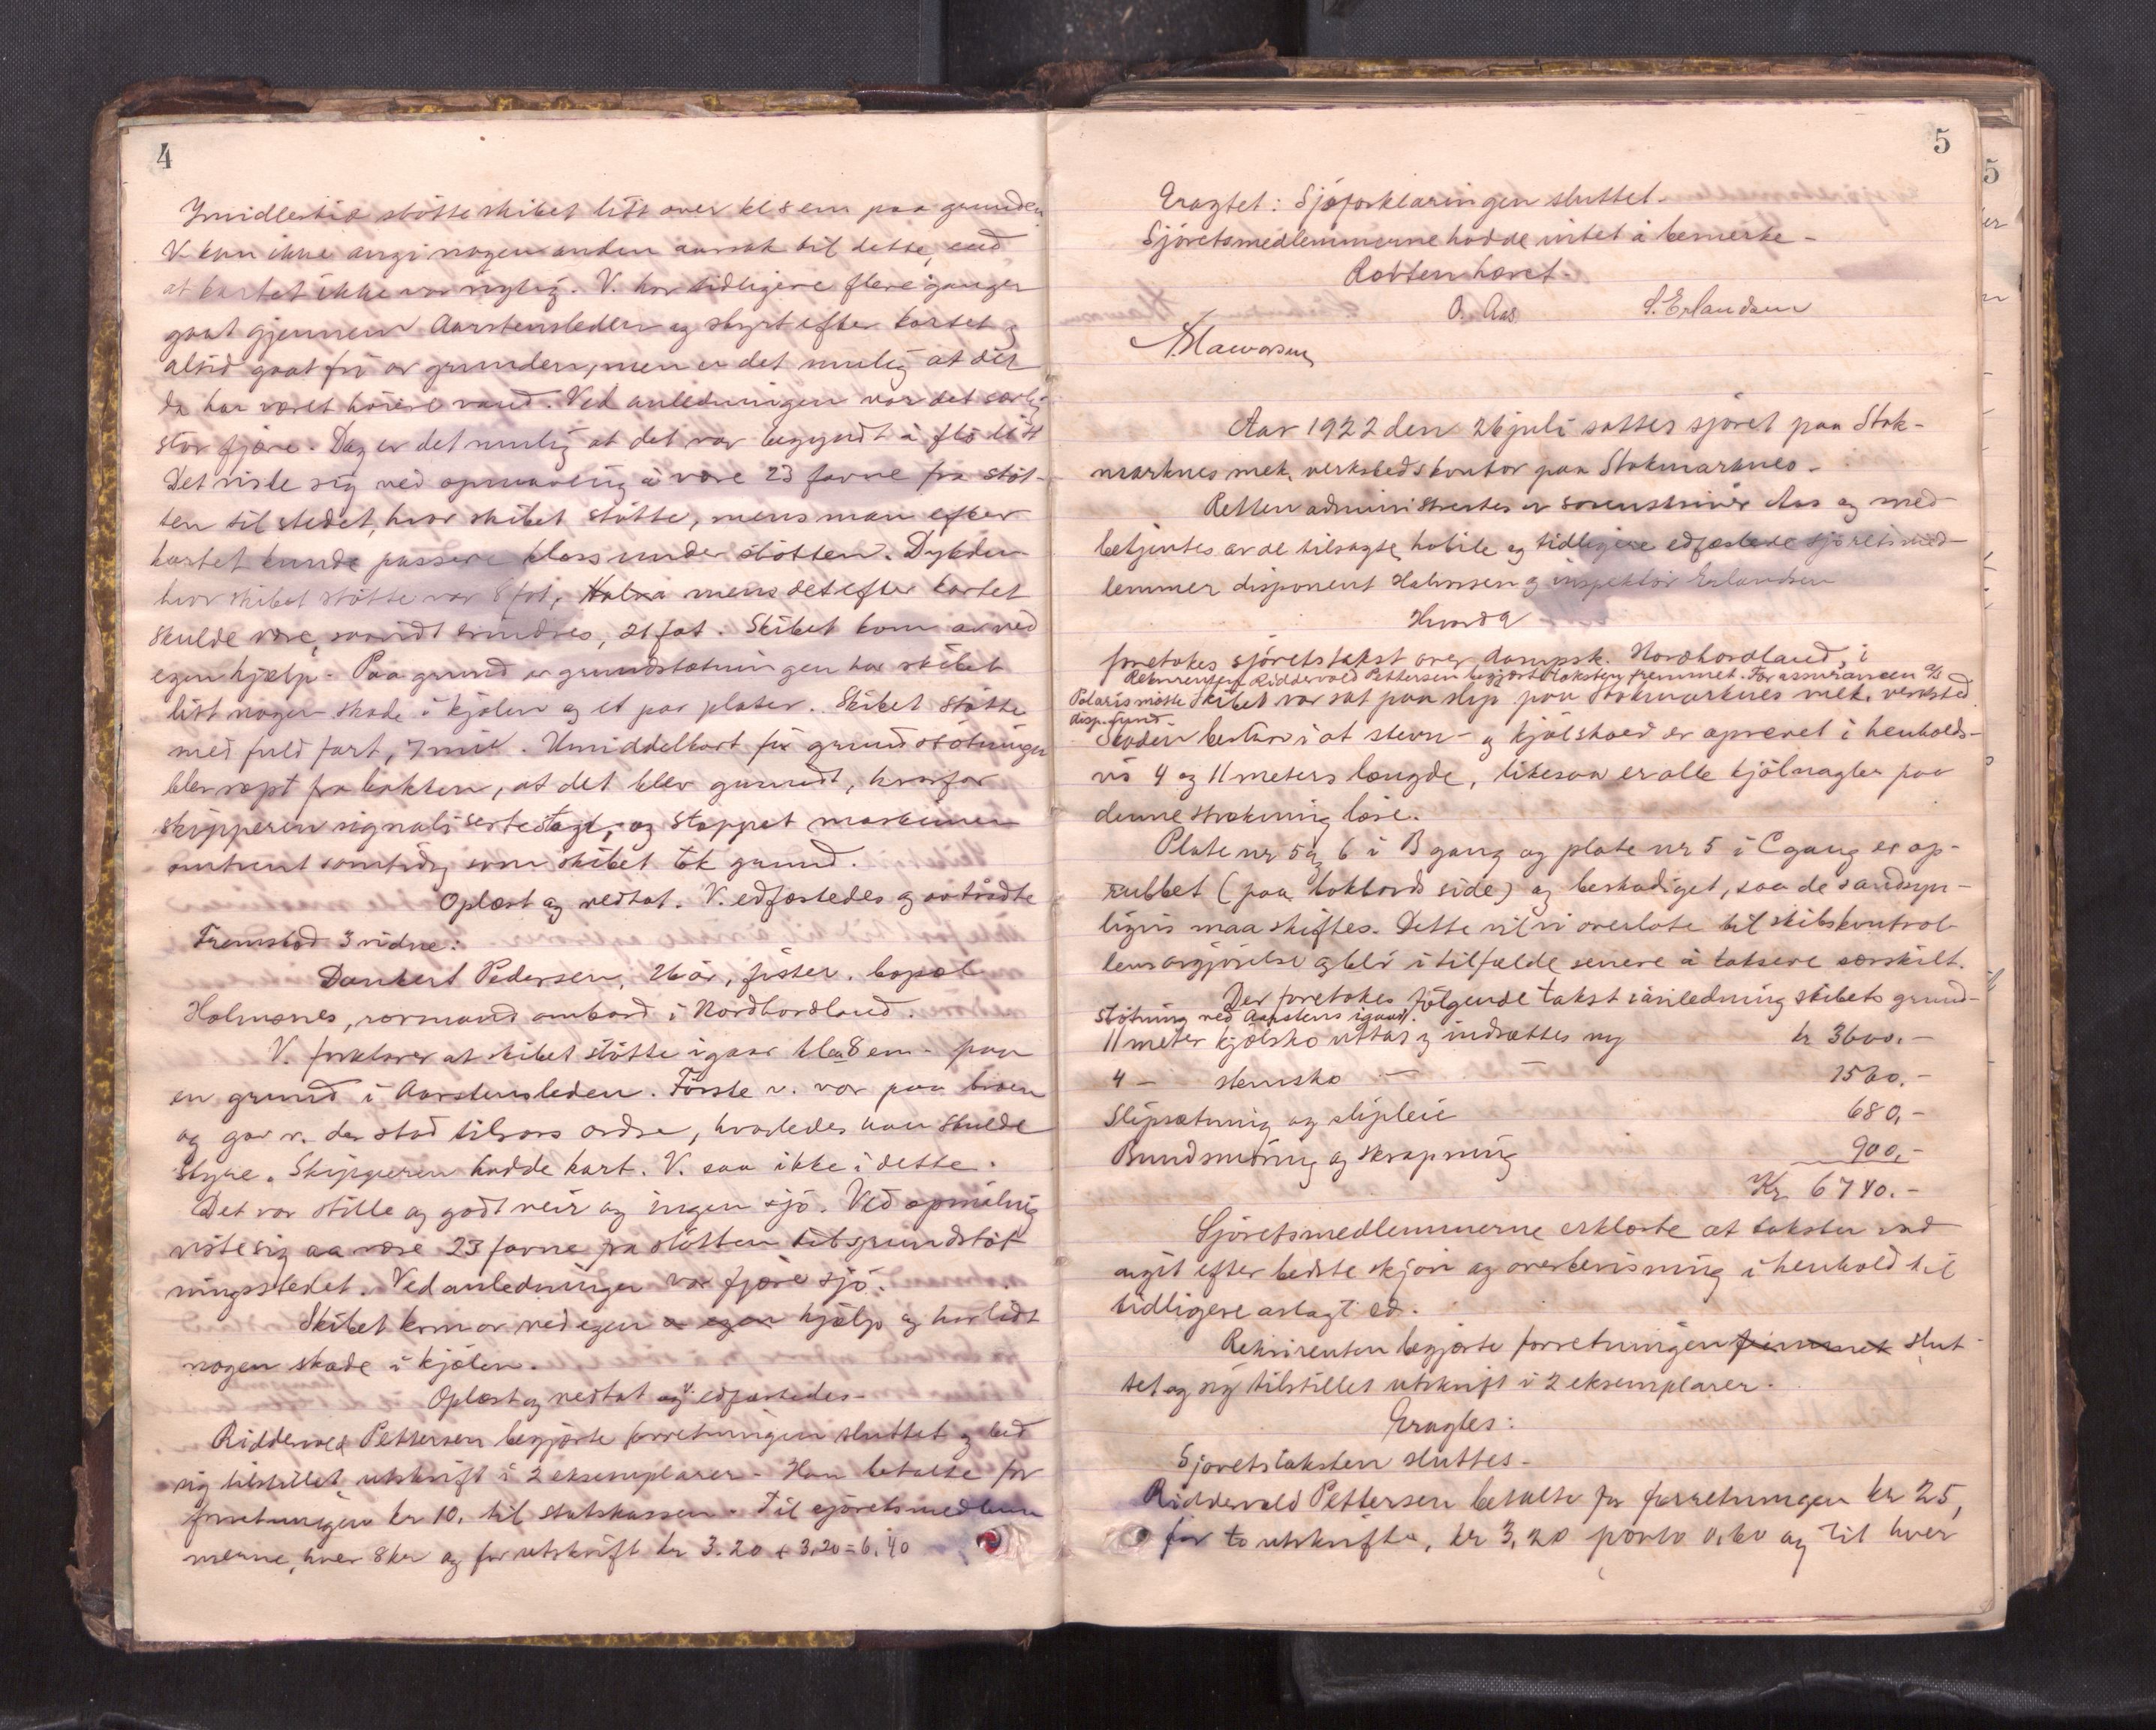 4
Imidlertid støtte skibet litt over kl 8 em paa grunden
V. kan ikke angi nogen anden aarsak til dette, end
at kartet ikke var rigtig. V. har tidligere flere ganger
gaat gjennem Aarstensleden og styrt efter kartet og
altid gaat fri av grunden, men er det mulig at der
da har været høiere vand. Ved anledningen var det særlig
stor fjære. Dog er det mulig at det var begyndt å flø litt
Det viste sig ved opmaaling å være 23 favne fra støt-
ten til stedet, hvor skibet støtte, mens man efter
kartet kunde passere klods under støtten. Dybden
hvor skibet støtte var 8 fot, mens det efter kartet
skulde være, saavidt erindres, 21 fot. Skibet kom av ved
egen hjælp. Paa grund av grundstøtningen har skibet
litt nogen skade i kjølen og et par plater. Skibet støtte
med fuld fart, 7 mil. Umiddelbart før grundstøtningen
blev ropt fra bakken, at det blev grundt, hvorfor
skipperen signaliserte stop, og stoppet maskinen
omtrent samtidig som skibet tok grund.
Oplæst og vedtat. V. edfæstedes og avtrådte
Fremstod 3 vidne:
Dankert Pedersen, 26 år, fisker, bopæl
Holmsnes, rormand ombord i Nordhordland.
V. forklarer at skibet støtte igaar kl ca 8 em. paa
en grund i Aarstensleden. Første v. var paa broen
og gav v. der stod tilrors ordre, hvorledes han skulde
styre. Skipperen hadde kart. V. saa ikke i dette.
Det var stille og godt veir og ingen sjø. Ved opmåling
viste sig aa være 23 favne fra støtten til grundstøt-
ningsstedet. Ved anledningen var fjære sjø.
Skibet kom av ved egen av egen hjælp og har lidt
nogen skade i kjølen.
Oplæst og vedtat og v. edfæstedes.
Riddervold Pettersen begjærte forretningen sluttet og bad
sig tilstillet utskrift i 2 eksemplarer. Han betalte for
forretningen kr 10. til statskassen. Til sjøretsmedlem
merne, hver 8 kr og for utskrift kr 3.20 + 3,20 = 6,40
5
Eragtet: Sjøforklaringen sluttet.
Sjøretsmedlemmerne hadde intet å bemerke.
Retten hævet.
O. Aas. S. Erlandsen
Halvorsen
Aar 1922 den 26 juli sattes sjøret paa Stok-
marknes mek. verksteds kontor paa Stokmarknes.
Retten administrertes av sorenskriver Aas og med
betjentes av de tilsagte, habile og tidligere edfæstede sjøretsmed-
lemmer disponent Halvorsen og inspektør Erlandsen
Hvorda
foretokes sjøretstakst over dampsk. Nordhordland, i
Rekvirenten Riddervold Pettersen begjært taksten fremmet. For assurancen A/S
Polaris møtte
disp. Fund.
Skibet var sat paa slip paa Stokmarknes mek. verksted.
Skaden består i at stevn- og kjølskoed er oprevet i henholds-
vis 4 og 11 meters længde, likesaa er alle kjølnagler paa
denne strækning løse.
Plate nr 5 og 6 i B gang og plate nr 5 i C gang er op-
rubbet (paa bakbords side) og beskadiget, saa de sandsyn-
ligvis maa skiftes. Dette vil vi overlate til skibskontrol-
lens avgjørelse og blir i tilfælde senere å taksere særskilt.
Der foretokes følgende takst i anledning skibets grund-
støtning ved Aarstens igaar.
11 meter kjølsko uttas og indsættes ny kr 3600.-
4 - stevnsko — — 1560.-
Slipsætning og slipleie 680,-
Bundsmøring og skrapning 900,-
Kr 6740.-
Sjøretsmedlemmerne erklærte at taksten var
avgit efter bedste skjøn og overbevisning i henhold til
tidligere avlagt ed.
Rekvirenten begjærte forretningen fremmet slut-
tet og sig tilstillet utskrift i 2 eksemplarer.
Eragtes:
Sjøretstaksten sluttes.
Riddervold Pettersen betalte for forretningen kr 25,
for to utskrifter, kr 3,20 porto 0,60 og til hver